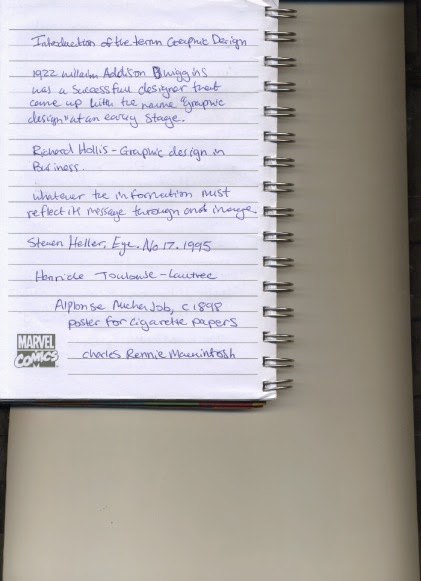 Introduction of the term Graphic Design
1922 william Addison Dwiggins
was a successful designer that
came up with the name "graphic
design" at an early stage.
Richard Hollis - Graphic design in
Business.
whatever the information must
reflect its message through and image.
Steven Heller, Eye. No 17. 1995
Henride Toulouse-Lautrec
Alphonse Mucha Job, c 1898
poster for cigarette papers
MARVEL
COMICS
Charles Rennie Mackintosh